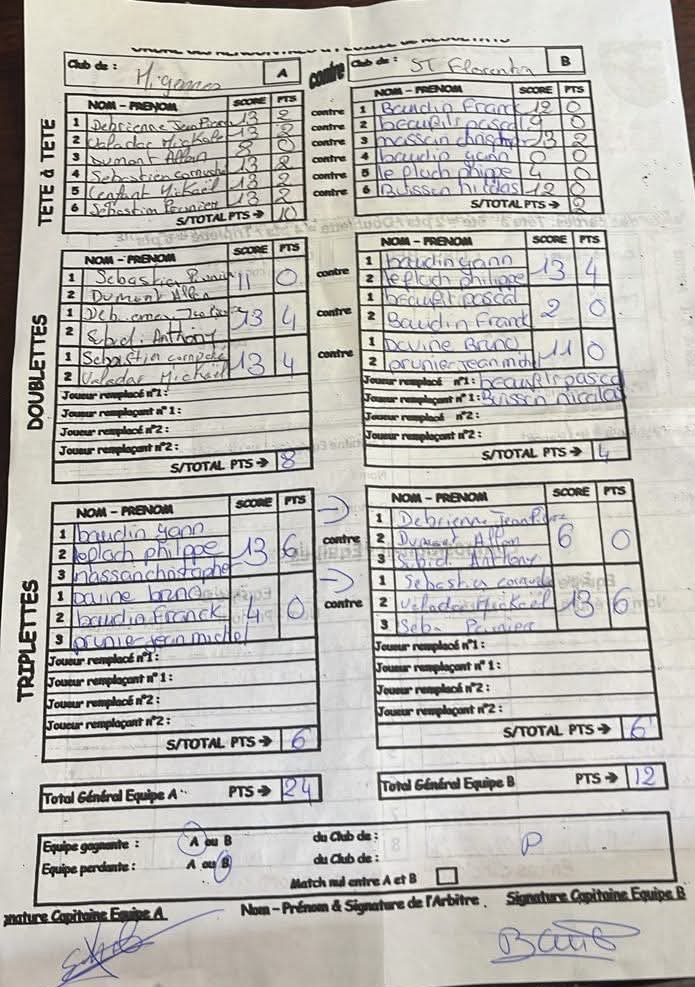 ORDRE DES RENCONTRES & FEUILLE DE RESULTATS
Club de : Migennes A contre Club de : ST Florentin B
TETE à TETE
NOM - PRENOM SCORE PTS NOM - PRENOM SCORE PTS
1 Debrienne Jean Pierre 13 2 contre 1 Baudin Franck 12 0
2 Valadar Mickaël 13 2 contre 2 beaufils pascal 9 0
3 Dumont Allan 8 0 contre 3 massan christophe 13 2
4 Sebastien cornuché 13 2 contre 4 baudin yann 0 0
5 Lenfant Mikaël 13 2 contre 5 le flach philippe 4 0
6 Sébastien Prunier 13 2 contre 6 Buisson nicolas 12 0
S/TOTAL PTS → 10 S/TOTAL PTS → 2
DOUBLETTES
NOM - PRENOM SCORE PTS NOM - PRENOM SCORE PTS
1 Sebastien Prunier 11 0 contre 1 baudin yann 13 4
2 Dumont Allan 2 le flach philippe
1 Debrienne Jean Pierre 13 4 contre 1 beaufils pascal 2 0
2 Subidi Anthony 2 Baudin Franck
1 Sebastien cornuché 13 4 contre 1 Davine Bruno 11 0
2 Valadar Mickaël 2 prunier jean michel
Joueur remplacé n°1 : Joueur remplacé n°1 : beaufils pascal
Joueur remplaçant n°1 : Joueur remplaçant n°1 : Buisson nicolas
Joueur remplacé n°2 : Joueur remplacé n°2 :
Joueur remplaçant n°2 : Joueur remplaçant n°2 :
S/TOTAL PTS → 8 S/TOTAL PTS → 4
TRIPLETTES
NOM - PRENOM SCORE PTS NOM - PRENOM SCORE PTS
1 baudin yann 1 Debrienne Jean Pierre
2 le flach philippe 13 6 contre 2 Dumont Allan 6 0
3 massan christophe 3 Subidi Anthony
1 Davine bruno 1 Sebastien cornuché
2 baudin Franck 4 0 contre 2 Valadar Mickaël 13 6
3 prunier jean michel 3 Seba Prunier
Joueur remplacé n°1 : Joueur remplacé n°1 :
Joueur remplaçant n°1 : Joueur remplaçant n°1 :
Joueur remplacé n°2 : Joueur remplacé n°2 :
Joueur remplaçant n°2 : Joueur remplaçant n°2 :
S/TOTAL PTS → 6 S/TOTAL PTS → 6
Total Général Equipe A PTS → 24 Total Général Equipe B PTS → 12
Equipe gagnante : A ou B du Club de : P
Equipe perdante : A ou B du Club de :
Match nul entre A et B
Signature Capitaine Equipe A Nom - Prénom & Signature de l'Arbitre Signature Capitaine Equipe B